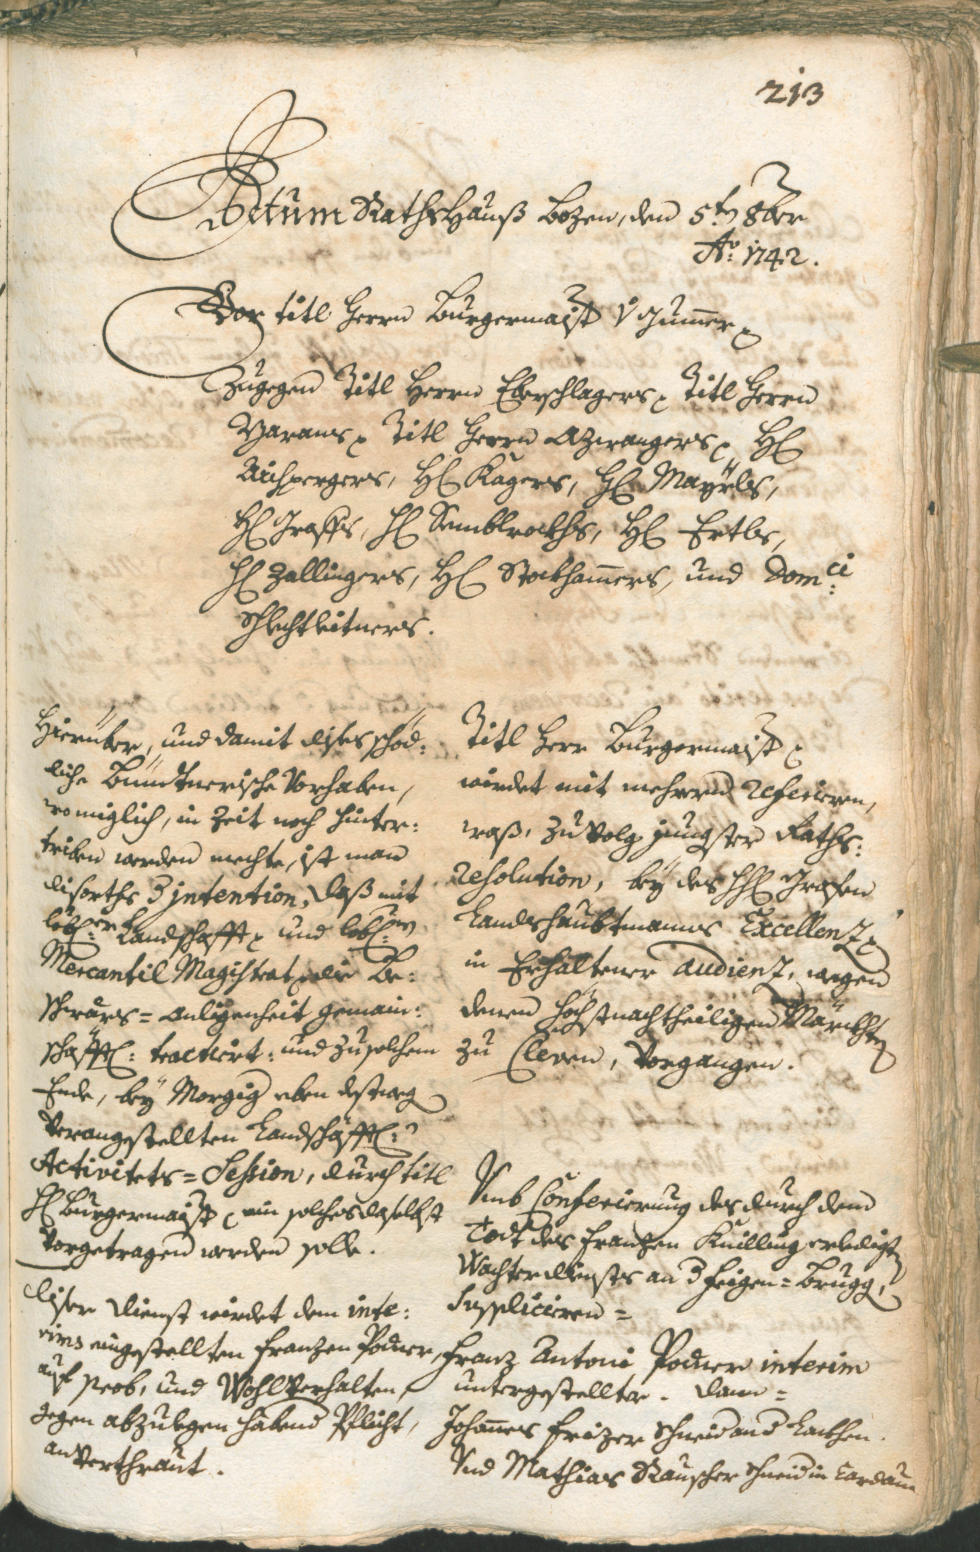 213
Actum Rathshauß Bozen, den 5t 8ber
Ao: 1742.
Vor titl Herrn Burgermaist V Gummer
Zugegen Titl Herrn Eberschlagers Titl Herrn
Titl Herrn Azwangers, H
Aichpergers, H Kagers, H Mayrls,
H Graffs, H Semblroths, H Ertls,
H Zallingers, H Stockhamers, und Domci:
Schlechtleitners.
Hierüber, und damit dises schöd:
liche Bündtnerische Vorhaben,
wo miglich, in Zeit noch hinter:
triben werden mechte, ist man
diserths Z intention, daß mit
löbl: Landschafft und löbl:
Mercantil Magistrat die Be:
schwärs= Anligenheit gemain:
schäfftl: tractirt: und zu solchem
Ende, bey Morgig eben destweg
verangestellten Landschäfftl:
Activitets= Session, durch titl
H Burgermaist ein solches daselbst
vorgetragen werden solle.
Titl Herr Burgermaist
wirdet mit mehrern referieren,
waß, zu Volg jüngster Raths:
resolution, bey des H Grafen
Landshaubtmanns Excellenz
in Erhaltener audienz, wegen
denen höchstnachtheiligen Märckht
zu Cleven, vorgangen.
Umb Conferierung des durch dem
Todt des Franzen Knilling erledigt
Wachterdiensts an Z Feigen= Brugg,
Suppliciren =
Diser Dienst wirdet dem inte:
rims eingestellten Franzen Podner,
auf prob, und Wohlverhalten,
gegen abzulegen habend Pflicht,
anverthraut.
Franz Antoni Podner interim
untergestellter. dann =
Johannes Frizer Schneid and Laithen.
Und Mathias Rauscher Schneid in Cardaun